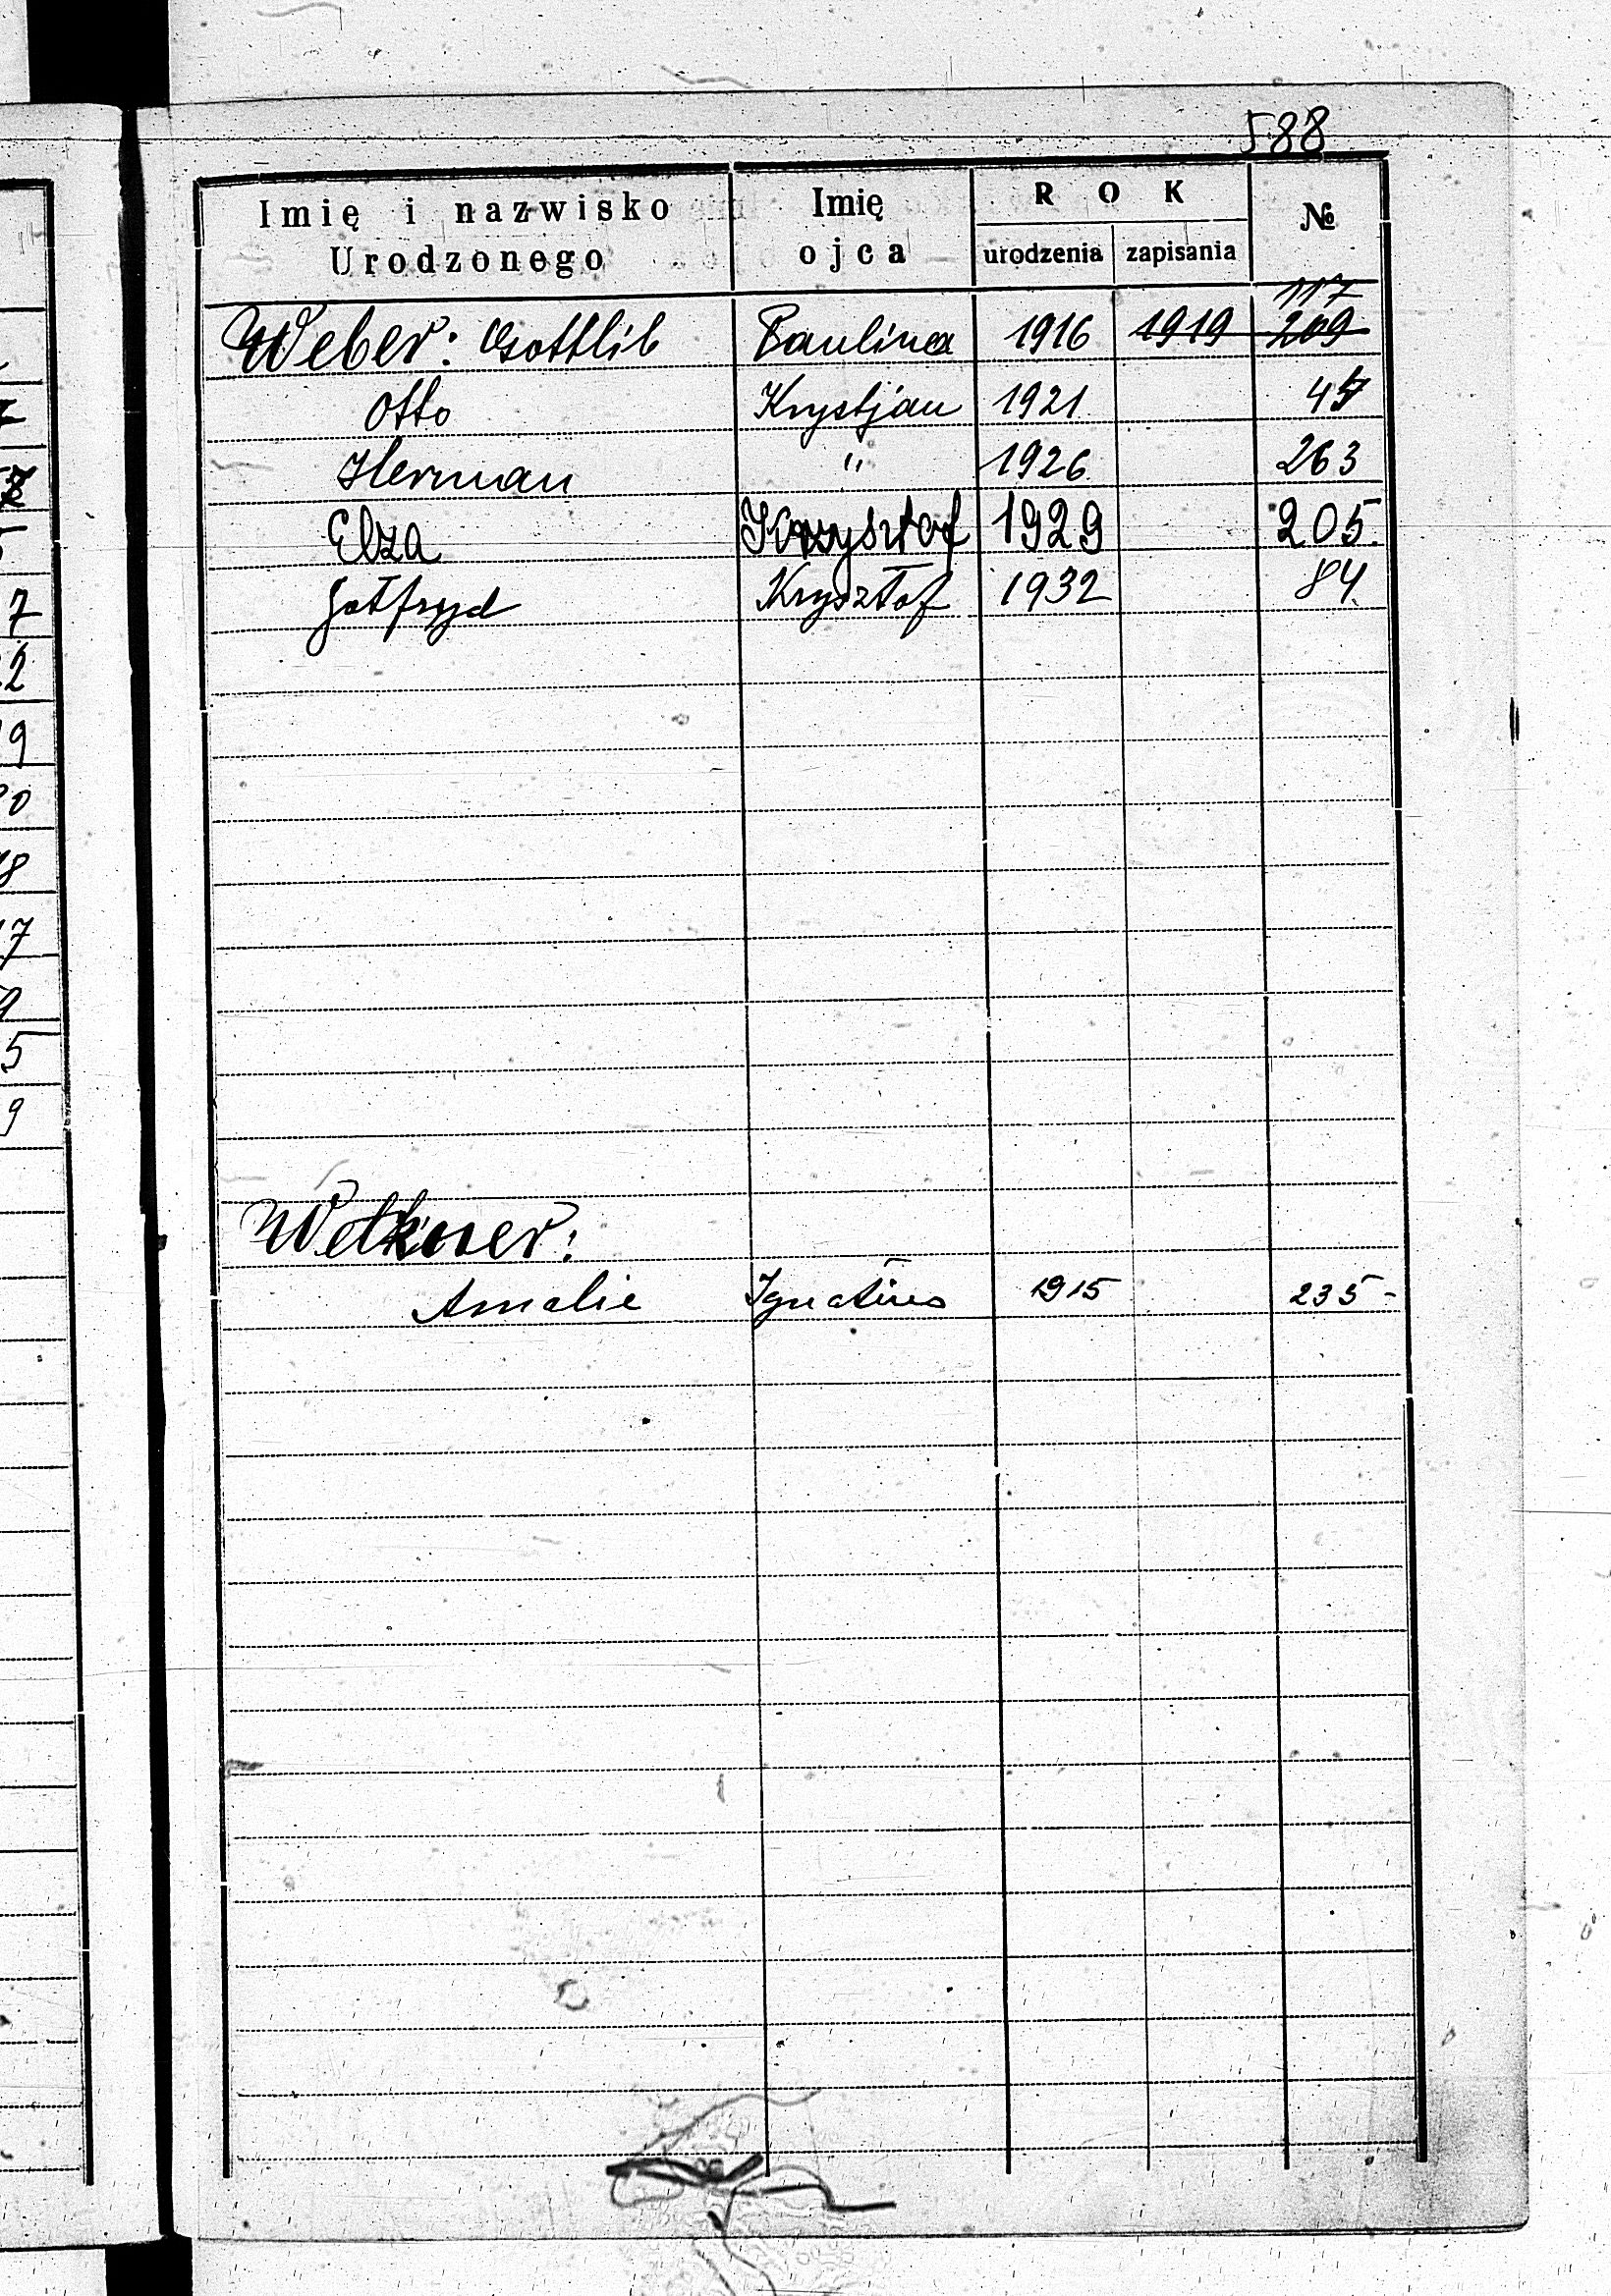 588
Imię i nazwisko Urodzonego Imię ojca ROK №
urodzenia zapisania
117
Weber: Gottlib Paulina 1916 1919 209
Otto Krystjan 1921
Herman " 1926 263
Elza Krzysztof 1929 205.
Gotfryd Krysztof 1932 84
Amalie Ignatius 1915 235-
7
2
19
0
8
17
9
5
9